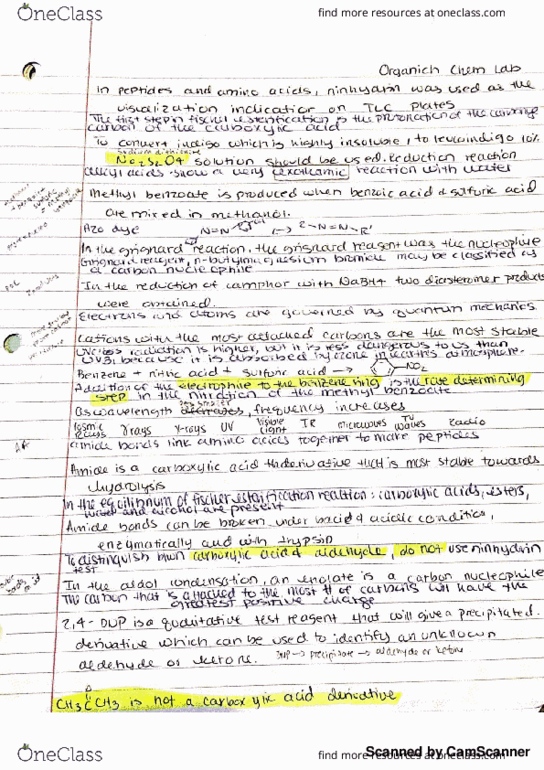 OneClass
find more resources at oneclass.com
Organich Chem Lab
In peptides and amino acids, ninhydrin was used as the
visualization indication on TLC plates
The first step in fischel esterification is the protonation of the
carbon of the carboxylic acid
To convert indigo which is highly insoluble, to leucoindigo 10%
Na2S2O4 solution should be used. Reduction reaction
alkyl acids show a very exothermic reaction with water
Methyl benzoate is produced when benzoic acid & sulfuric acid
are mixed in methanol.
Azo dye
In the grignard reaction, the grignard reagent was the nucleophile
Grignard reagent, n-butylmagnesium bromide may be classified as
a carbon nucleophile
In the reduction of camphor with NaBH4 two diastereomer products
were obtained.
Electrons and atoms are governed by quantum mechanics
Cations with the most attached carbons are the most stable
radiation is higher, but it is less dangerous to us than
UVB, because it is absorbed by ozone in earths atmosphere.
Benzene + nitric acid + sulfuric acid → NO2
Addition of the electrophile to the benzene ring is the rate determining
step in the nitration of the methyl benzoate
As wavelength decreases, frequency increases
cosmic rays γrays x-rays UV visible light IR microwaves TV waves radio
amide bonds link amino acids together to make peptides
Amide is a carboxylic acid that is most stable towards
hydrolysis
In the equilibrium of fischer esterification reaction: carboxylic acids, esters,
water and alcohol are present
Amide bonds can be broken under & acidic conditions,
enzymatically and with trypsin
To distinguish btwn carboxylic acid & aldehyde, do not use ninhydrin
test
In the aldol condensation, an enolate is a carbon nucleophile
The carbon that is attached to the most # of carbons will have the
greatest positive charge
2,4-DNP is a qualitative test reagent that will give a precipitated
derivative which can be used to identify an unknown
aldehyde or ketone. DNP → precipitate → aldehyde or ketone
O
CH3CCH3 is not a carboxylic acid derivative
OneClass
find more resources at oneclass.com
Scanned by CamScanner